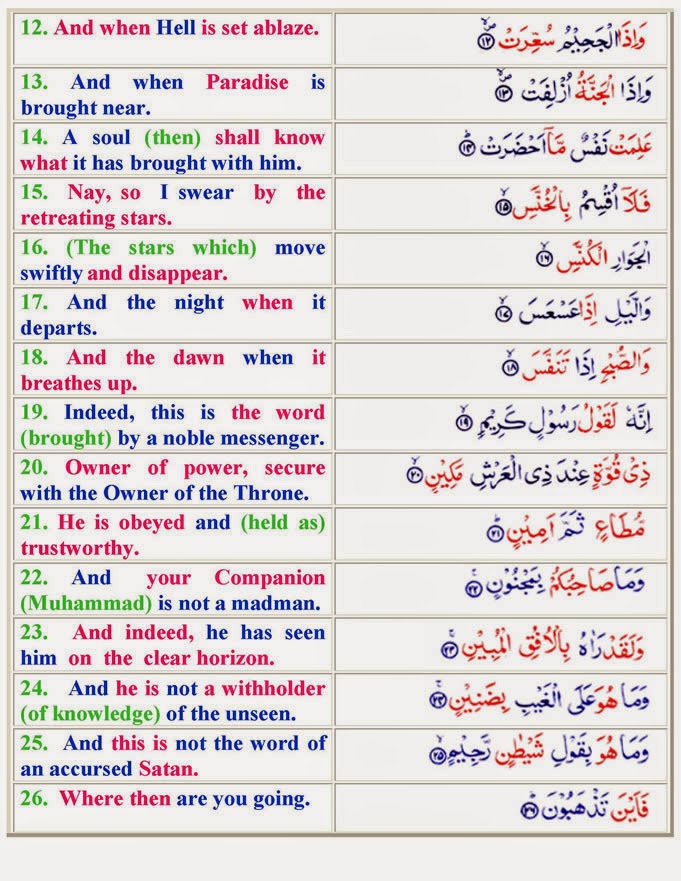 12. And when Hell is set ablaze.
وَاِذَا الْجَحِيْمُ سُعِّرَتْ ۪ۙ ﴿۱۲﴾
13. And when Paradise is
brought near.
وَاِذَا الْجَنَّةُ اُزْلِفَتْ ۪ۙ ﴿۱۳﴾
14. A soul (then) shall know
what it has brought with him.
عَلِمَتْ نَفْسٌ مَّاۤ اَحْضَرَتْ ؕ ﴿۱۴﴾
15. Nay, so I swear by the
retreating stars.
فَلَاۤ اُقْسِمُ بِالْخُنَّسِ ۙ ﴿۱۵﴾
16. (The stars which) move
swiftly and disappear.
الْجَوَارِ الْكُنَّسِ ۙ ﴿۱۶﴾
17. And the night when it
departs.
وَالَّيْلِ اِذَا عَسْعَسَ ۙ ﴿۱۷﴾
18. And the dawn when it
breathes up.
وَالصُّبْحِ اِذَا تَنَفَّسَ ۙ ﴿۱۸﴾
19. Indeed, this is the word
(brought) by a noble messenger.
اِنَّهٗ لَقَوْلُ رَسُوْلٍ كَرِيْمٍ ۙ ﴿۱۹﴾
20. Owner of power, secure
with the Owner of the Throne.
ذِيْ قُوَّةٍ عِنْدَ ذِي الْعَرْشِ مَكِيْنٍ ۙ ﴿۲۰﴾
21. He is obeyed and (held as)
trustworthy.
مُّطَاعٍ ثَمَّ اَمِيْنٍ ؕ ﴿۲۱﴾
22. And your Companion
(Muhammad) is not a madman.
وَمَا صَاحِبُكُمْ بِمَجْنُوْنٍ ۚ ﴿۲۲﴾
23. And indeed, he has seen
him on the clear horizon.
وَلَقَدْ رَاٰهُ بِالْاُفُقِ الْمُبِيْنِ ۚ ﴿۲۳﴾
24. And he is not a withholder
(of knowledge) of the unseen.
وَمَا هُوَ عَلَى الْغَيْبِ بِضَنِيْنٍ ۚ ﴿۲۴﴾
25. And this is not the word of
an accursed Satan.
وَمَا هُوَ بِقَوْلِ شَيْطٰنٍ رَّجِيْمٍ ۙ ﴿۲۵﴾
26. Where then are you going.
فَاَيْنَ تَذْهَبُوْنَ ؕ ﴿۲۶﴾